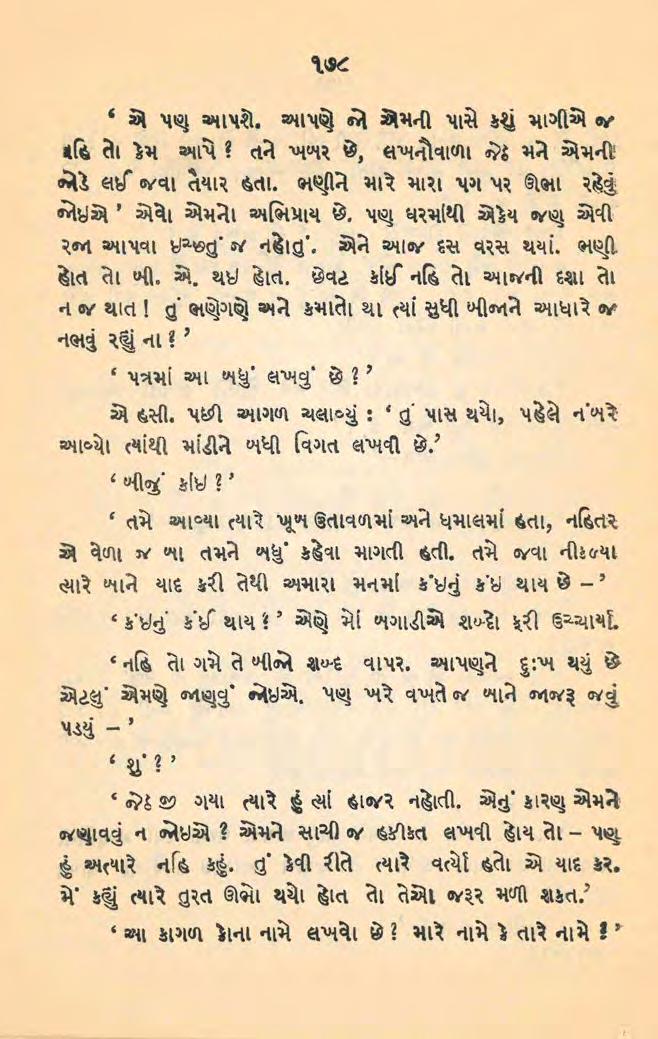 ૧૭૮
‘ એ પણ આપશે. આપણે જો એમની પાસે કશું માગીએ જ
નહિ તો કેમ આપે ? તને ખબર છે, લખનૌવાળા જેઠ મને એમની
જોડે લઈ જવા તૈયાર હતા. ભણીને મારે મારા પગ પર ઊભા રહેવું
જોઇએ ’ એવો એમનો અભિપ્રાય છે. પણ ઘરમાંથી એકેય જણ એવી
રજા આપવા ઇચ્છતું જ નહોતું. એને આજ દસ વરસ થયાં. ભણી
હોત તો બી. એ. થઇ હોત. છેવટ કાંઈ નહિ તો આજની દશા તો
ન જ થાત ! તું ભણેગણે અને કમાતો થા ત્યાં સુધી બીજાને આધારે જ
નભવું રહ્યું ના ? ’
‘ પત્રમાં આ બધું લખવું છે ? ’
એ હસી. પછી આગળ ચલાવ્યું : ‘ તું પાસ થયો, પહેલે નંબરે
આવ્યો ત્યાંથી માંડીને બધી વિગત લખવી છે.’
‘ બીજું કાંઇ ? ’
‘ તમે આવ્યા ત્યારે ખૂબ ઉતાવળમાં અને ધમાલમાં હતા, નહિતર
એ વેળા જ બા તમને બધું કહેવા માગતી હતી. તમે જવા નીકળ્યા
ત્યારે બાને યાદ કરી તેથી અમારા મનમાં કંઇનું કંઇ થાય છે – ’
‘ કંઇનું કંઈ થાય ? ’ એણે મોં બગાડીએ શબ્દો ફરી ઉચ્ચાર્યા.
‘ નહિ તો ગમે તે બીજો શબ્દ વાપર. આપણને દુઃખ થયું છે
એટલું એમણે જાણવું જોઇએ. પણ ખરે વખતે જ બાને જાજરૂ જવું
પડયું – ’
‘ શું ? ’
‘ જેઠ જી ગયા ત્યારે હું ત્યાં હાજર નહોતી. એનું કારણ એમને
જણાવવું ન જોઇએ ? એમને સાચી જ હકીકત લખવી હોય તો – પણ
હું અત્યારે નહિ કહું. તું કેવી રીતે ત્યારે વર્ત્યો હતો એ યાદ કર.
મેં કહ્યું ત્યારે તુરત ઊભો થયો હોત તો તેઓ જરૂર મળી શકત.’
‘ આ કાગળ કોના નામે લખવો છે ? મારે નામે કે તારે નામે ? ’